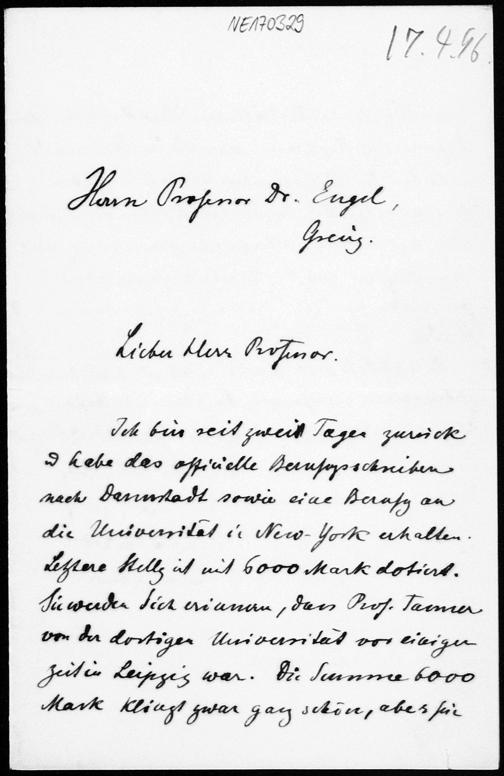 NE170329
17.4.96.
Herrn Professor Dr. Engel,
Lieber Herr Professor.
Ich bin seit zwei Tagen zurück
& habe das officielle Berufungsschreiben
nach Darmstadt sowie eine Berufg an
die Universität in New-York erhalten.
Letztere Stellg ist mit 6000 Mark dotiert.
Sie werden Sich erinnern, dass Prof. Tanner
von der dortigen Universität vor einiger
Zeit in Leipzig war. Die Summe 6000
Mark klingt zwar ganz schön, aber für